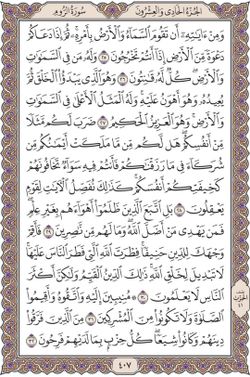 الجزء الحادي والعشرون
سورة الروم
وَمِنْ ءَايَٰتِهِۦٓ أَن تَقُومَ ٱلسَّمَآءُ وَٱلْأَرْضُ بِأَمْرِهِۦ ثُمَّ إِذَا دَعَاكُمْ
دَعْوَةً مِّنَ ٱلْأَرْضِ إِذَآ أَنتُمْ تَخْرُجُونَ ٢٥ وَلَهُۥ مَن فِى ٱلسَّمَٰوَٰتِ
وَٱلْأَرْضِ كُلٌّ لَّهُۥ قَٰنِتُونَ ٢٦ وَهُوَ ٱلَّذِى يَبْدَؤُا۟ ٱلْخَلْقَ ثُمَّ
يُعِيدُهُۥ وَهُوَ أَهْوَنُ عَلَيْهِ وَلَهُ ٱلْمَثَلُ ٱلْأَعْلَىٰ فِى ٱلسَّمَٰوَٰتِ
وَٱلْأَرْضِ وَهُوَ ٱلْعَزِيزُ ٱلْحَكِيمُ ٢٧ ضَرَبَ لَكُم مَّثَلًا
مِّنْ أَنفُسِكُمْ هَل لَّكُم مِّن مَّا مَلَكَتْ أَيْمَٰنُكُم مِّن
شُرَكَآءَ فِى مَا رَزَقْنَٰكُمْ فَأَنتُمْ فِيهِ سَوَآءٌ تَخَافُونَهُمْ
كَخِيفَتِكُمْ أَنفُسَكُمْ كَذَٰلِكَ نُفَصِّلُ ٱلْءَايَٰتِ لِقَوْمٍ
يَعْقِلُونَ ٢٨ بَلِ ٱتَّبَعَ ٱلَّذِينَ ظَلَمُوٓا۟ أَهْوَآءَهُم بِغَيْرِ عِلْمٍ
فَمَن يَهْدِى مَنْ أَضَلَّ ٱللَّهُ وَمَا لَهُم مِّن نَّٰصِرِينَ ٢٩ فَأَقِمْ
وَجْهَكَ لِلدِّينِ حَنِيفًا فِطْرَتَ ٱللَّهِ ٱلَّتِى فَطَرَ ٱلنَّاسَ عَلَيْهَا
لَا تَبْدِيلَ لِخَلْقِ ٱللَّهِ ذَٰلِكَ ٱلدِّينُ ٱلْقَيِّمُ وَلَٰكِنَّ أَكْثَرَ
ٱلنَّاسِ لَا يَعْلَمُونَ ٣٠ مُنِيبِينَ إِلَيْهِ وَٱتَّقُوهُ وَأَقِيمُوا۟
ٱلصَّلَوٰةَ وَلَا تَكُونُوا۟ مِنَ ٱلْمُشْرِكِينَ ٣١ مِنَ ٱلَّذِينَ فَرَّقُوا۟
دِينَهُمْ وَكَانُوا۟ شِيَعًا كُلُّ حِزْبٍۭ بِمَا لَدَيْهِمْ فَرِحُونَ ٣٢
الحزب
٤١
٤٠٧